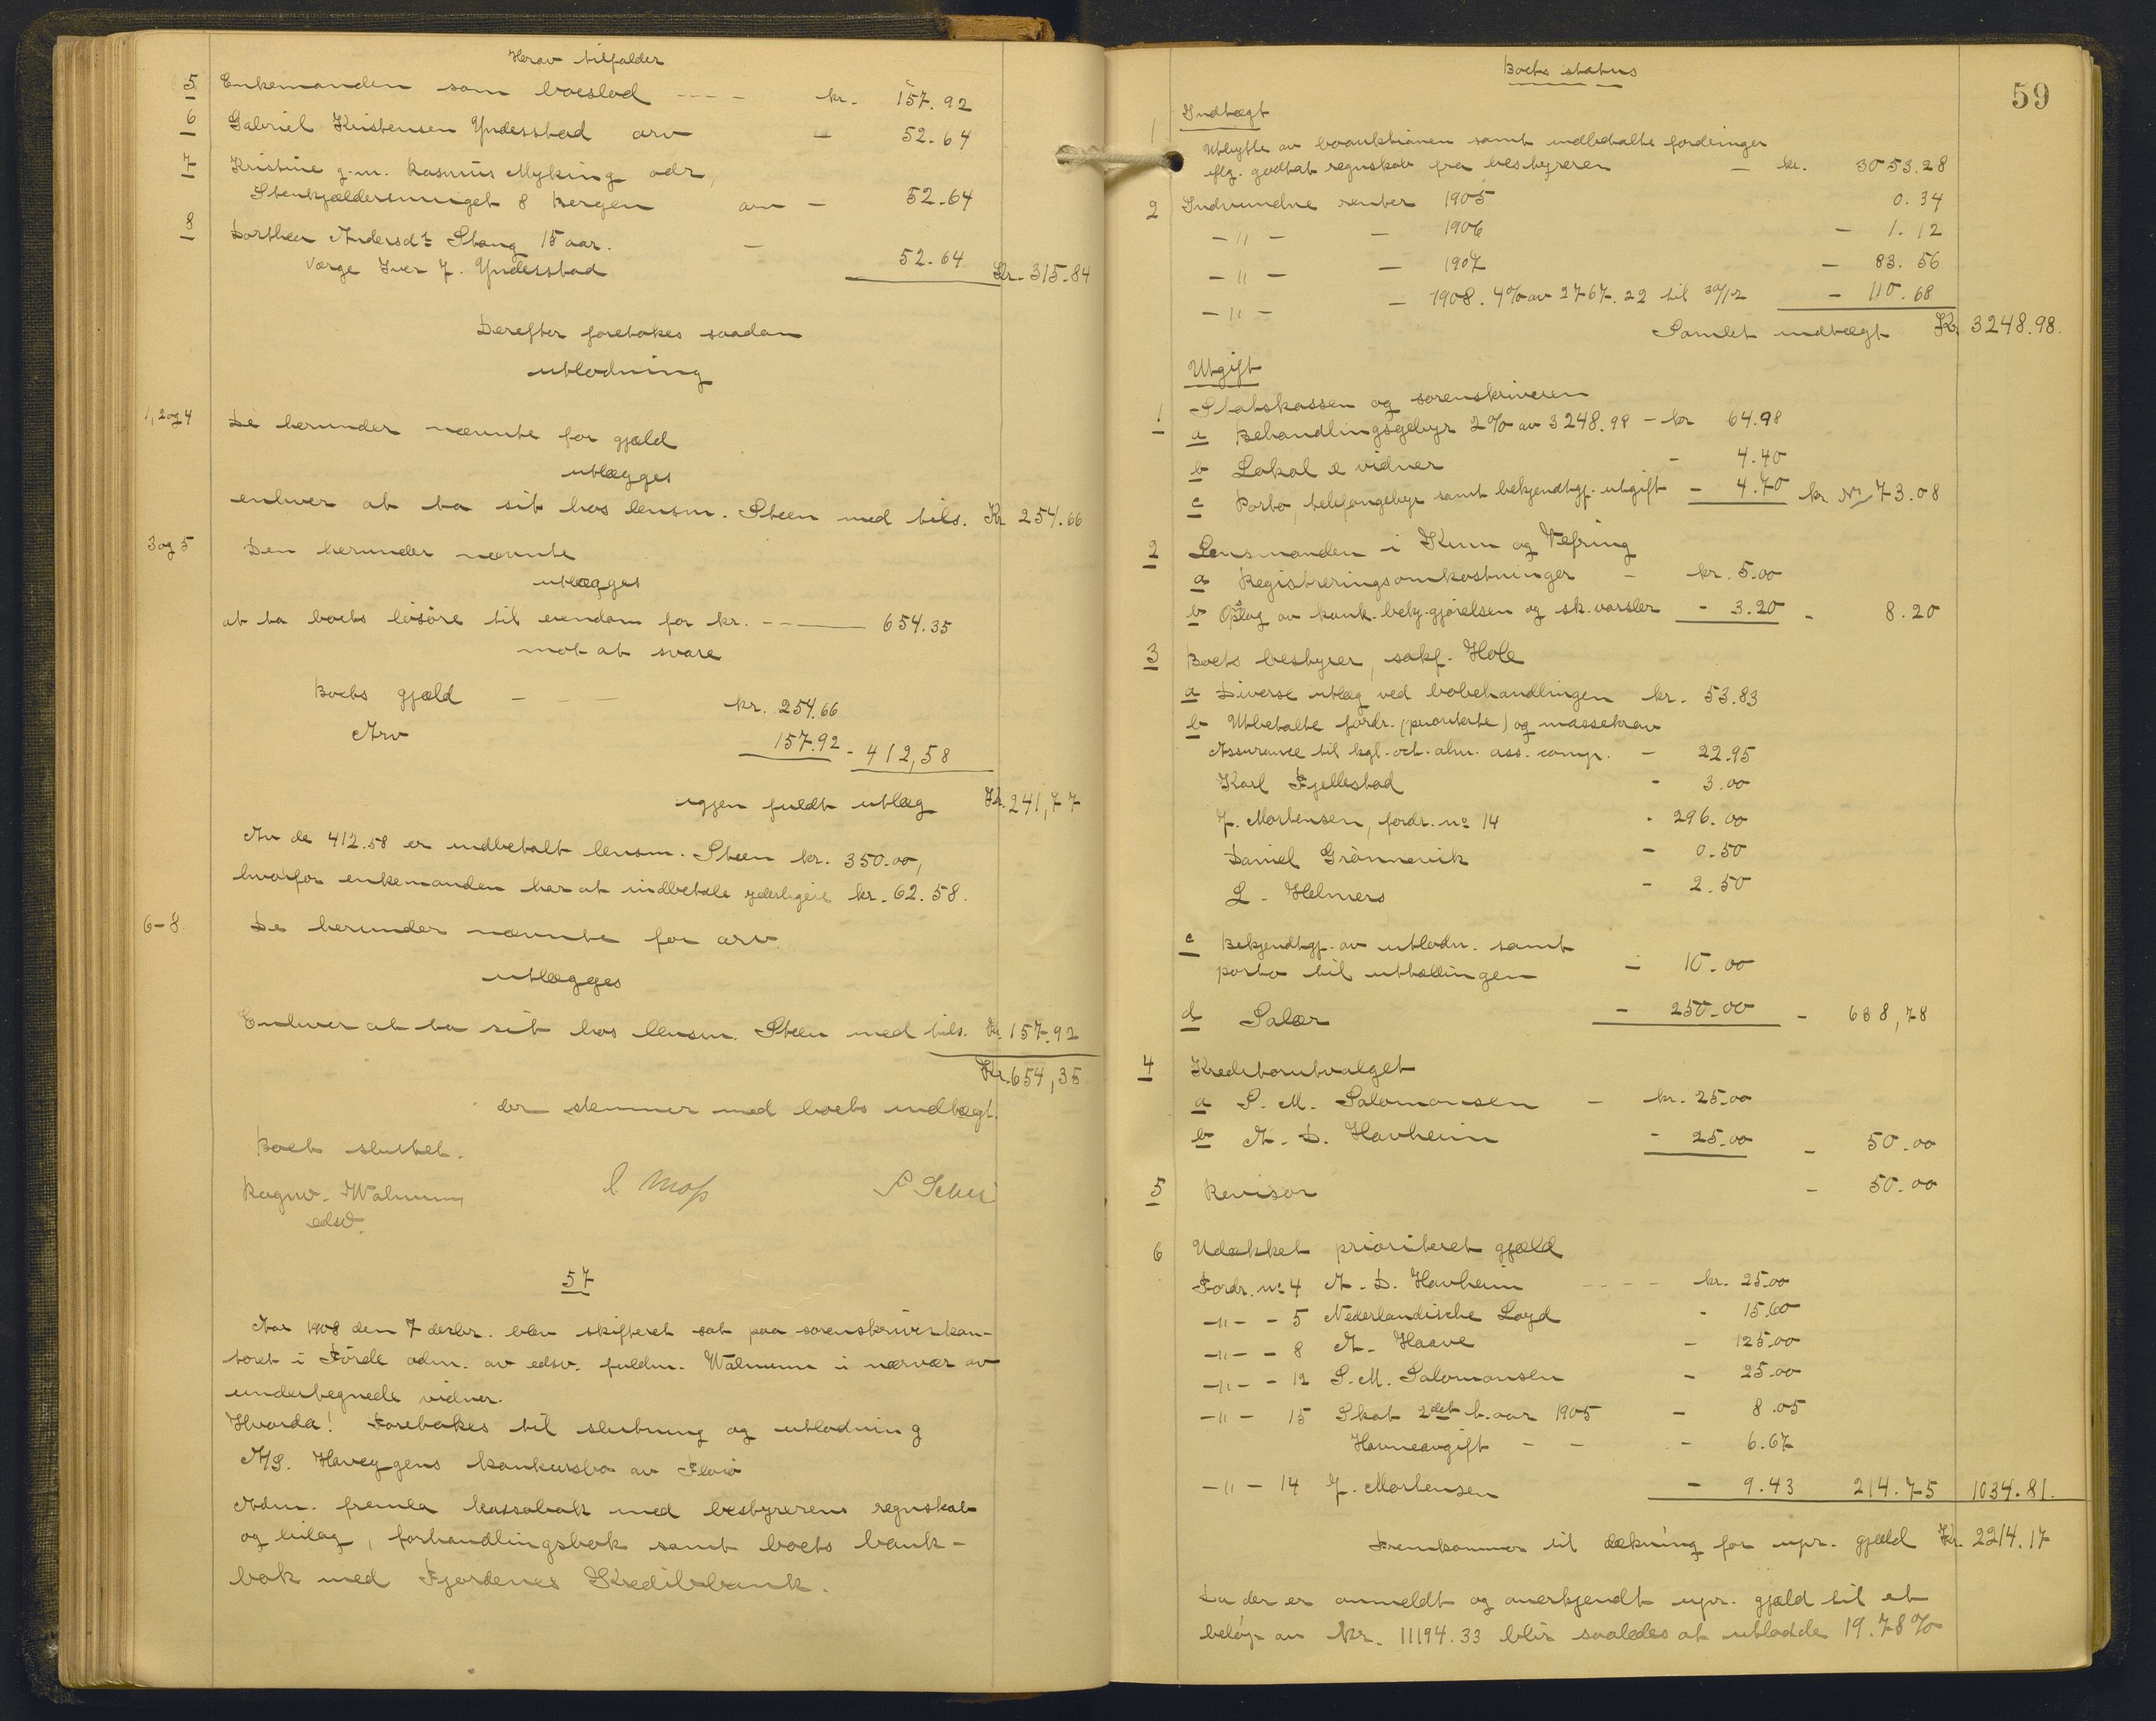 Herav tilfalder
5 Enkemanden som boeslod ---- kr. 157.92
6 Gabriel Kristensen Yndesstad arv - 52.64
7 Kristine g.m. Rasmus Myking adr,
Stenkjældersmuget 8 Bergen arv - 52.64
8 Dorthea Andersdr. Stang 15 aar. -
Værge Iver J. Yndesstad 52.64 Kr. 315.84
Derefter foretakes saadan
utlodning
1, 2 og 4 De herunder nævnte for gjæld
utlægges
enhver at ta sit hos lensm. Steen med tils. Kr 254.66
3 og 5 Den herunder nævnte
utlægges
at ta boets løsøre til eiendom for kr. ---- 654.35
mot at svare
Boets gjæld - - - kr. 254.66
Arv 157.92 - 412,58
igjen fuldt utlæg Kr. 241,77
Av de 412.58 er indbetalt lensm. Steen kr. 350.00,
hvorfor enkemanden har at indbetale yderligere kr. 62.58.
6-8. De herunder nævnte for arv
utlægges
Enhver at ta sit hos lensm. Steen med tils. Kr. 157.92
Kr. 654,35
der stemmer med boets indtægt.
Boet sluttet.
Ragnv. Walnum
edsv.
L Moss
57
Aar 1908 den 7 decbr. blev skifteret sat paa sorenskriverkon-
toret i Førde adm. av edsv. fuldm. Walnum i nærvær av
undertegnede vidner.
Hvorda! Foretakes til slutning og utlodning
A/S. Havøygens konkursbo av Florø
Adm. fremla kassabok med bestyrerens regnskab
og bilag, forhandlingsbok samt boets bank-
bok med Fjordenes Kreditbank.
59
Boets status
Indtægt
1 Utbytte av boauktionen samt indbetalte fordringer
iflg. godtat regnskab fra bestyreren - kr. 3053.28
2 Indvundne renter 1905 0.34
-"- - 1906 - 1.12
-"- - 1907 - 83.56
-"- - 1908. 4% av 2767.22 til 30/12 - 110.68
Samlet indtægt Kr. 3248.98.
Utgift
1 Statskassen og sorenskriveren
a Behandlingsgebyr 2% av 3248.98 - kr 64.98
b Lokal & vidner - 4.40
c Porto, telefongebyr samt bekjendtgj. utgift - 4.70 kr. 73.08
2 Lensmanden i Kinn og Vefring
a Registreringsomkostninger - kr. 5.00
b Opslag av konk. bekj.gjørelsen og sk.varsler - 3.20 - 8.20
3 Boets bestyrer, sakf. Hole
a Diverse utlæg ved bobehandlingen kr. 53.83
b Utbetalte fordr. (prioriterte) og massekrav
Assurance til kgl. oct. alm. ass. comp. - 22.95
Karl Fjellestad - 3.00
J. Mortensen, fordr. no 14 - 296.00
Daniel Grønnevik - 0.50
L. Helmers - 2.50
c Bekjendtgj. av utlodn. samt
porto til uttællingen - 10.00
d Salær - 250.00 - 638,78
4 Kreditorutvalget
a S. M. Salomonsen - kr. 25.00
b A. D. Havheim - 25.00 - 50.00
5 Revisor - 50.00
6 Udækket prioriteret gjæld
Fordr. no 4 A. D. Havheim ---- kr. 25.00
-"- - 5 Nederlandische Loyd - 15.60
-"- - 8 A. Haave - 125.00
-"- - 12 S. M. Salomonsen - 25.00
-"- 15 Skat 2det h.aar 1905 - 8.05
Havneavgift - - - 6.67
-"- 14 J. Mortensen - 9.43 214.75 1034.81.
Fremkommer til dækning for upr. gjæld Kr. 2214.17
Da der er anmeldt og anerkjendt upr. gjæld til et
beløp av kr. 11194.33 blir saaledes at utlodde 19.78%